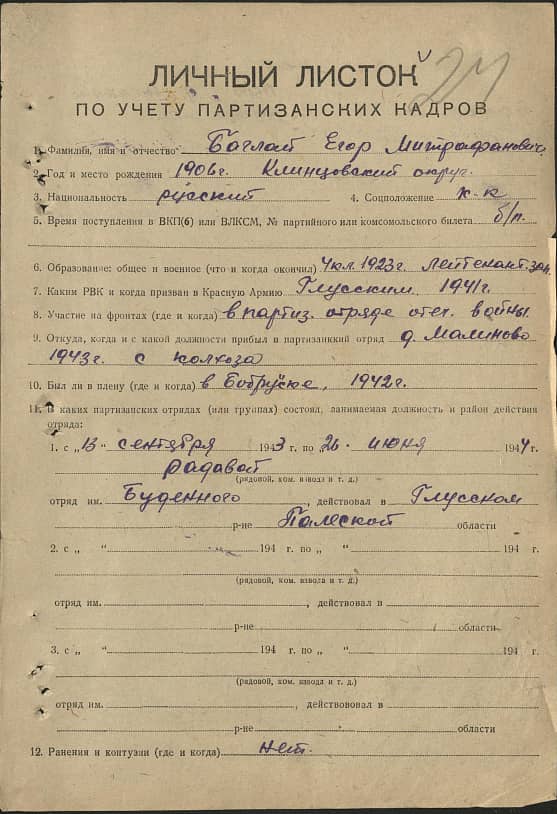 24
ЛИЧНЫЙ ЛИСТОК
ПО УЧЕТУ ПАРТИЗАНСКИХ КАДРОВ
1. Фамилия, имя и отчество Баглай Егор Митрафанович.
2. Год и место рождения 1906г. Клинцовский округ.
3. Национальность русский 4. Соцположение к-к
5. Время поступления в ВКП(б) или ВЛКСМ, № партийного или комсомольского билета б/п.
6. Образование: общее и военное (что и когда окончил) 4 кл. 1923г. лейтенант зап.
7. Каким РВК и когда призван в Красную Армию Глусским 1941г.
8. Участие на фронтах (где и когда) в партиз. отряде отеч. войны.
9. Откуда, когда и с какой должности прибыл в партизанский отряд д. Малиново
1943г. с колхоза
10. Был ли в плену (где и когда) в Бобруйске, 1942г.
11. В каких партизанских отрядах (или группах) состоял, занимаемая должность и район действия
отряда:
1. с „13“ сентября 1943 г. по „26“ июня 1944 г.
радавой
(рядовой, ком. взвода и т. д.)
отряд им. Буденного, действовал в Глусском
р-не Палеской области
2. с „ “ 194 г. по „ “ 194 г.
(рядовой, ком. взвода и т. д.)
отряд им. , действовал в
р-не области
3. с „ “ 194 г. по „ “ 194 г.
(рядовой, ком. взвода и т. д.)
отряд им. , действововал в
р-не области
12. Ранения и контузии (где и когда) нет.